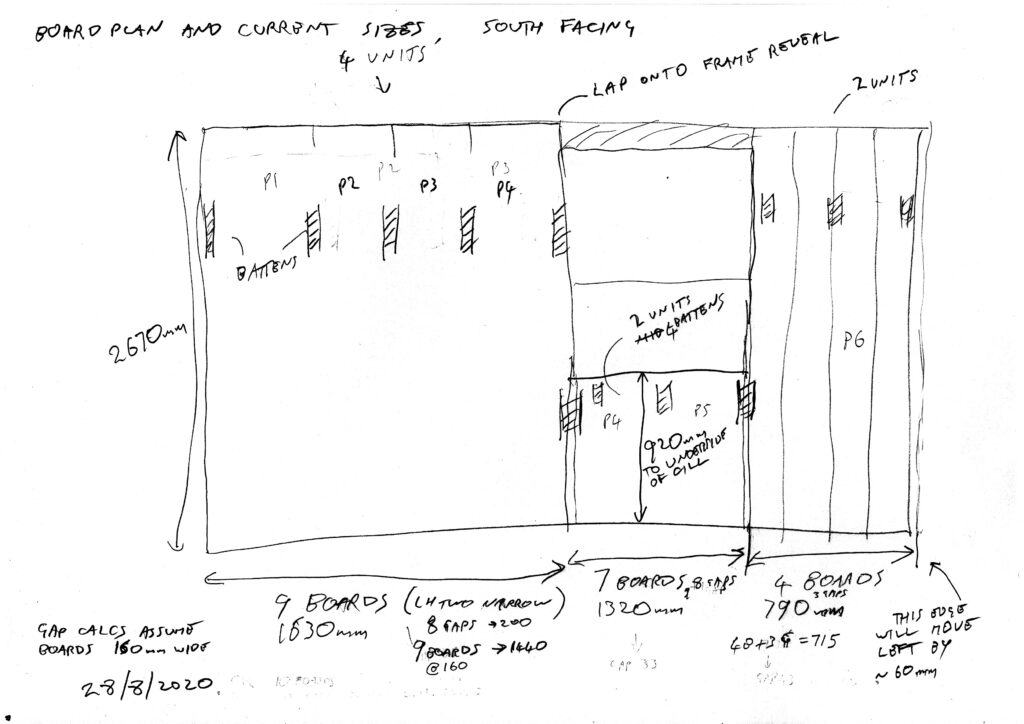 BOARD PLAN AND CURRENT SIZES, SOUTH FACING
4 UNITS
LAP ONTO FRAME REVEAL
2 UNITS
P1
P2
P2
P3
P3
P4
BATTENS
2670mm
2 UNITS
4 BATTENS
P6
P4
P5
920mm
TO UNDERSIDE
OF CILL
9 BOARDS (LH TWO NARROW)
1630mm
8 GAPS → 200
9 BOARDS → 1440
@ 160
7 BOARDS, 8 GAPS
1320mm
GAP 33
4 BOARDS
3 GAPS
790mm
= 715
THIS EDGE
WILL MOVE
LEFT BY
~ 60mm
GAP CALCS ASSUME
BOARDS 160mm WIDE
28/8/2020
10 BOARDS